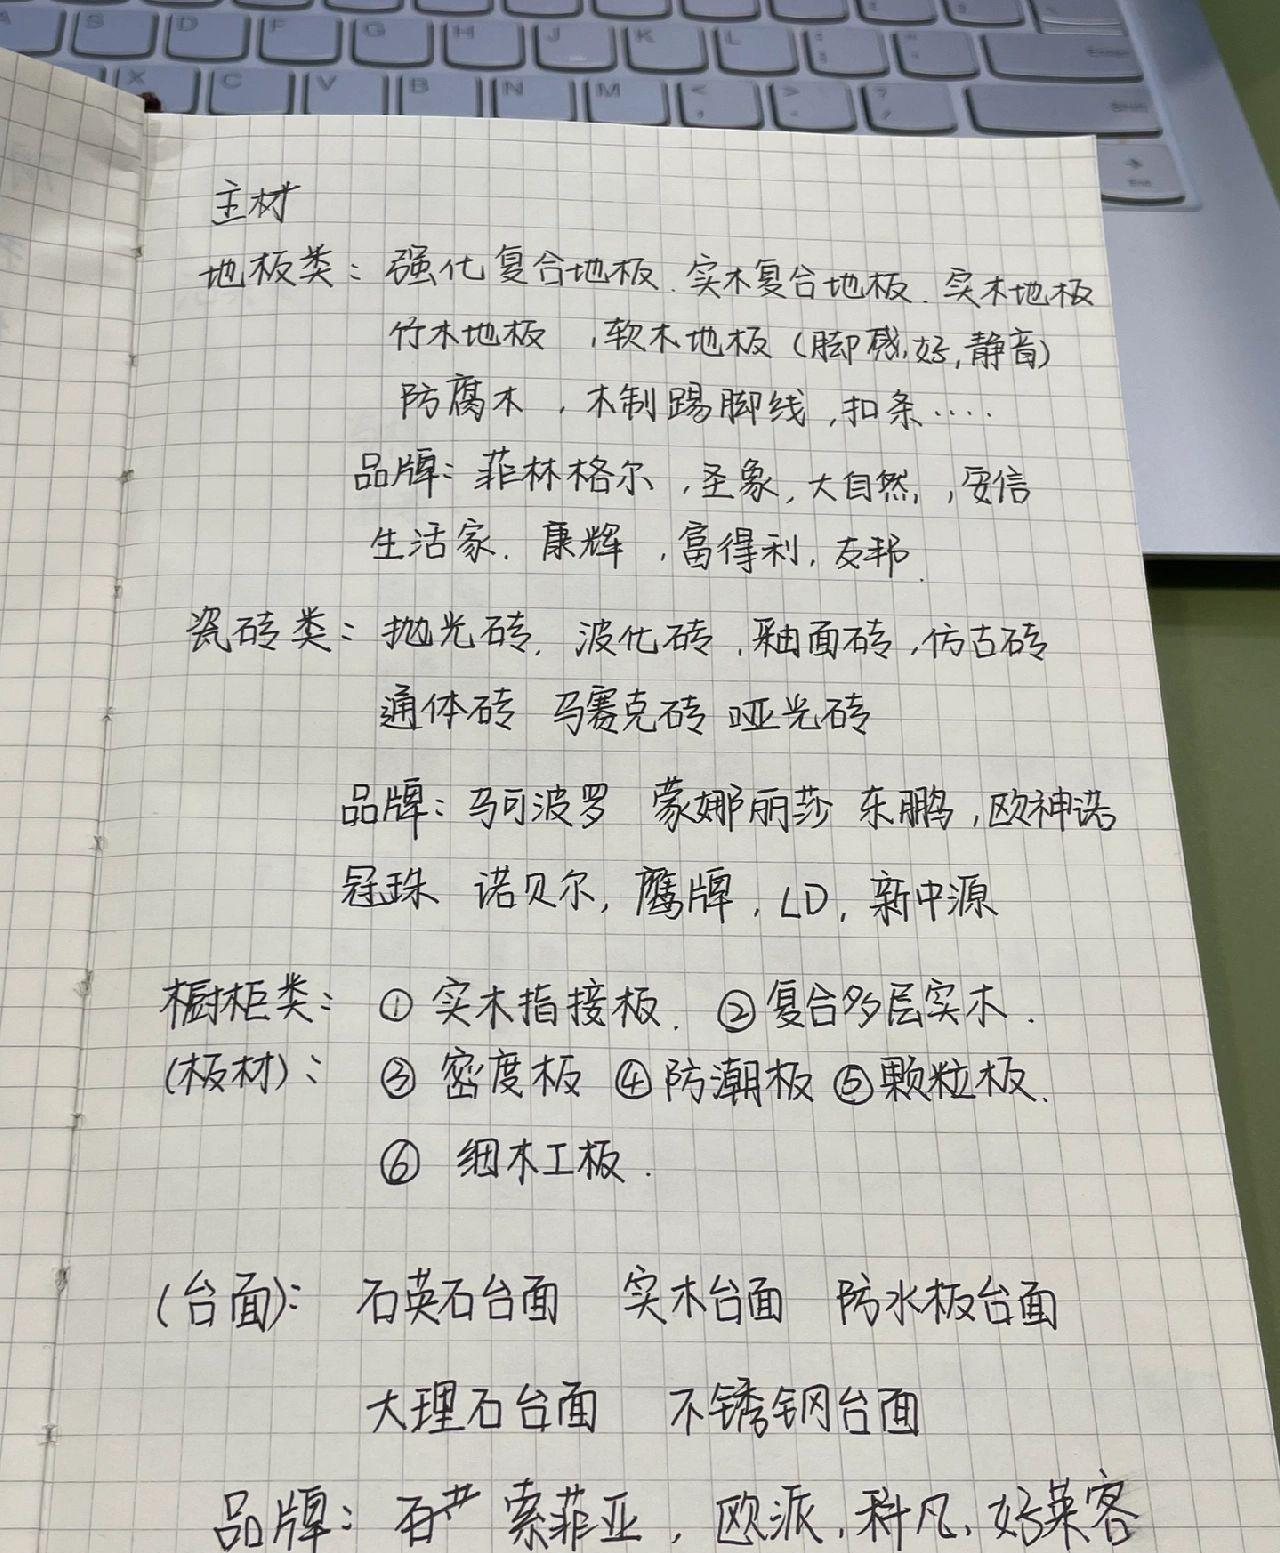 S D F G H J K L : ; " ' Enter
X C V B N M < , > . ? / Shift
End
主材
地板类：强化复合地板、实木复合地板、实木地板
竹木地板，软木地板（脚感，好，静音）
防腐木，木制踢脚线，扣条……
品牌：菲林格尔，圣象，大自然，，安信
生活家、康辉，富得利，友邦、
瓷砖类：抛光砖，波化砖，釉面砖，仿古砖
通体砖 马赛克砖 哑光砖
品牌：马可波罗 蒙娜丽莎 东鹏，欧神诺
冠珠 诺贝尔，鹰牌，LD，新中源
橱柜类：①实木指接板、②复合多层实木．
（板材）：③密度板 ④防潮板 ⑤颗粒板．
⑥细木工板．
（台面）：石英石台面 实木台面 防水板台面
大理石台面 不锈钢台面
品牌：索菲亚，欧派，科凡，好莱客